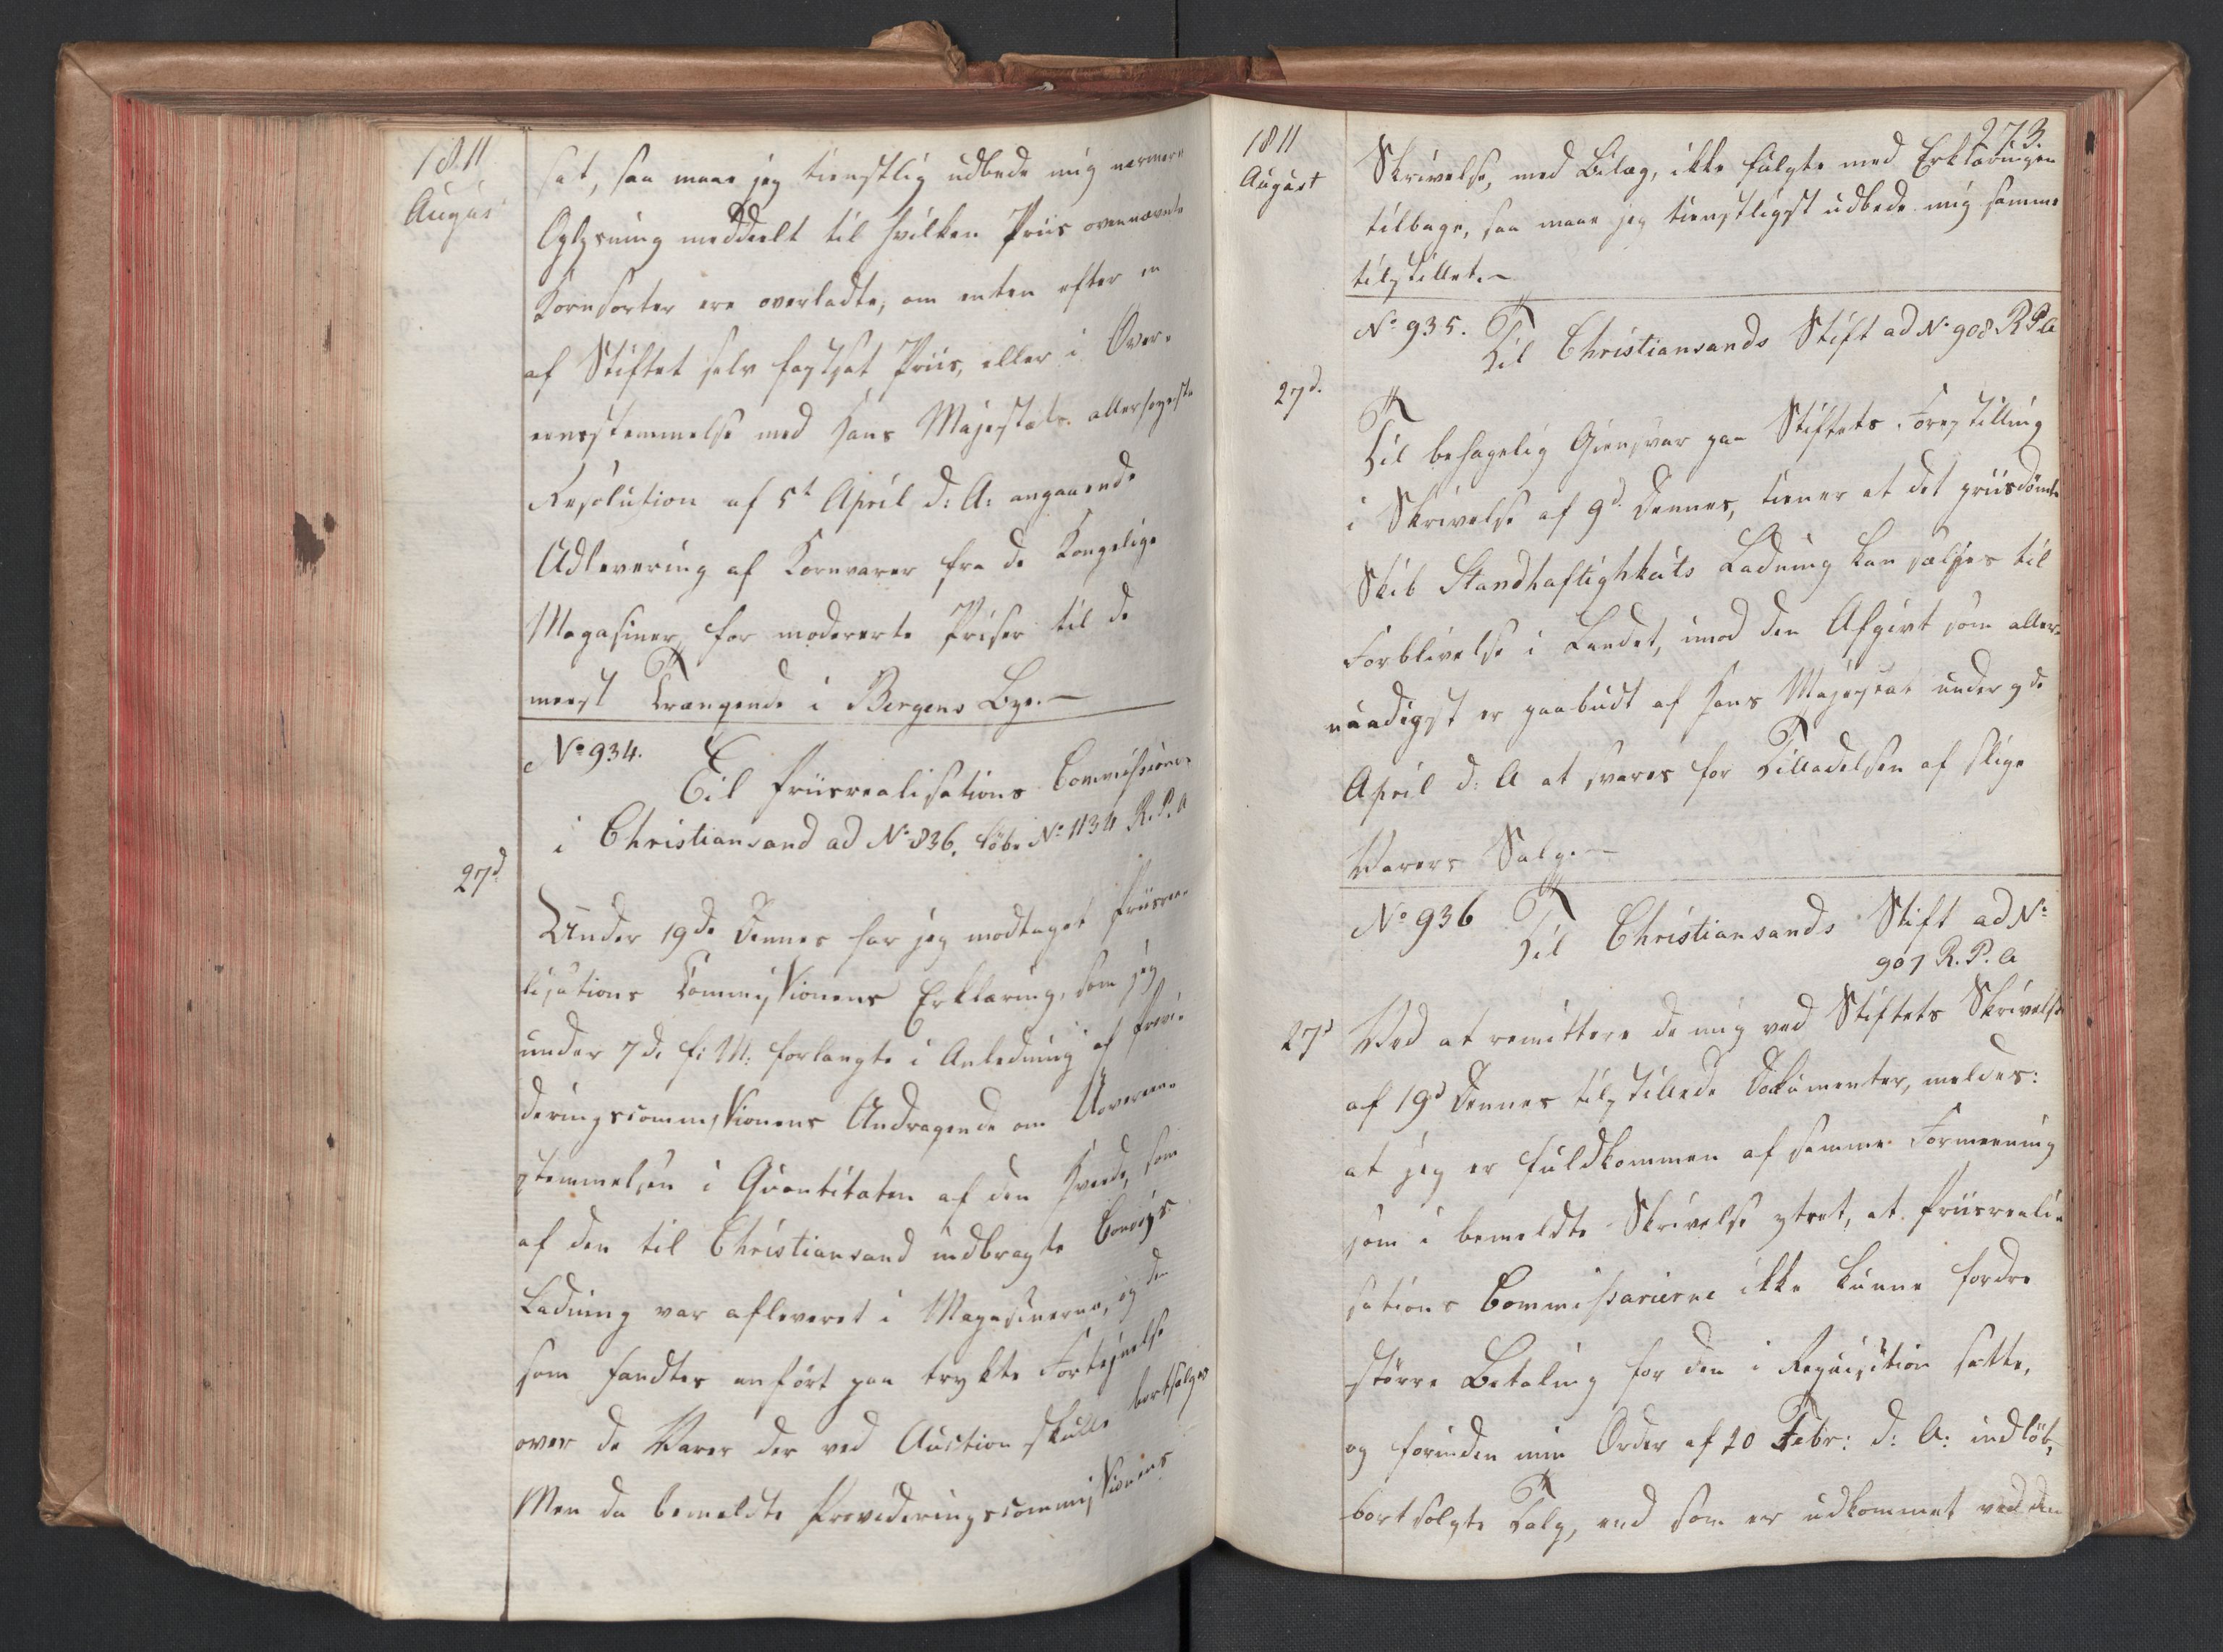 1811
August
sat, saa maae jeg tienstlig udbede mig nærmere
Oplysning meddeelt til hvilken Priis ovennævnte
Kornsorter ere overladte, om enten efter en
af Stiftet selv fastsat Priis, eller i Over-
eensstemmelse med Hans Majestæts allerhøyeste
Resolution af 5t April d: A: angaaende
Udlevering af Kornvarer fra de Kongelige
Magasiner for modererte Priser til de
meest Trængende i Bergens Bye.—
No 934.
Til Priisrealisations Commissionen
i Christiansand ad No 836. Löbe No 1134 R. P. A
27d
Under 19de Dennes har jeg modtaget Priisrea-
lisations Commissionens Erklæring, som jeg
under 7de f: M: forlangte i Anledning af Provi-
deringscommissionens Andragende om Uovereens-
stemmelsen i Qvantiteten af den Hvede, som
af den til Christiansand indbragte Convoys
Ladning var afleveret i Magasinerne, og den
som fandtes anført paa trykte Fortegnelse
over de Varer der ved Auction skulle bortsælges
Men da bemeldte Provideringscommissionens
273.
1811
August
Skrivelse, med Bilag, ikke fulgte med Erklæringen
tilbage, saa maae jeg tienstligst udbede mig samme
tilstillet.—
No 935. Til Christiansands Stift ad No 908 R P. A
27d.
Til behagelig Giensvar paa Stiftets Forestilling
i Skrivelse af 9d Dennes, tiener at det priisdömte
Skib Standhaftighheits Ladning kan sælges til
Forblivelse i Landet, imod den Afgivt som aller-
naadigst er paabudt af Hans Majestæt under 9de
April d: A at svares for Tilladelsen af slige
Varers Salg.—
No 936 Til Christiansands Stift ad No
907 R. P. A
27d
Ved at remittere de mig ved Stiftets Skrivelse
af 19d Dennes tilstillede Documenter, meldes:
at jeg er fuldkommen af samme Formeening
som i bemeldte Skrivelse ytret, at Priisreali-
sations Commissarierne ikke kunne fordre
større Betaling for den i Reqvisition satte,
og forinden min Order af 20 Febr: d: A: indlöb,
bortsolgte Talg, end som er udkommet ved den